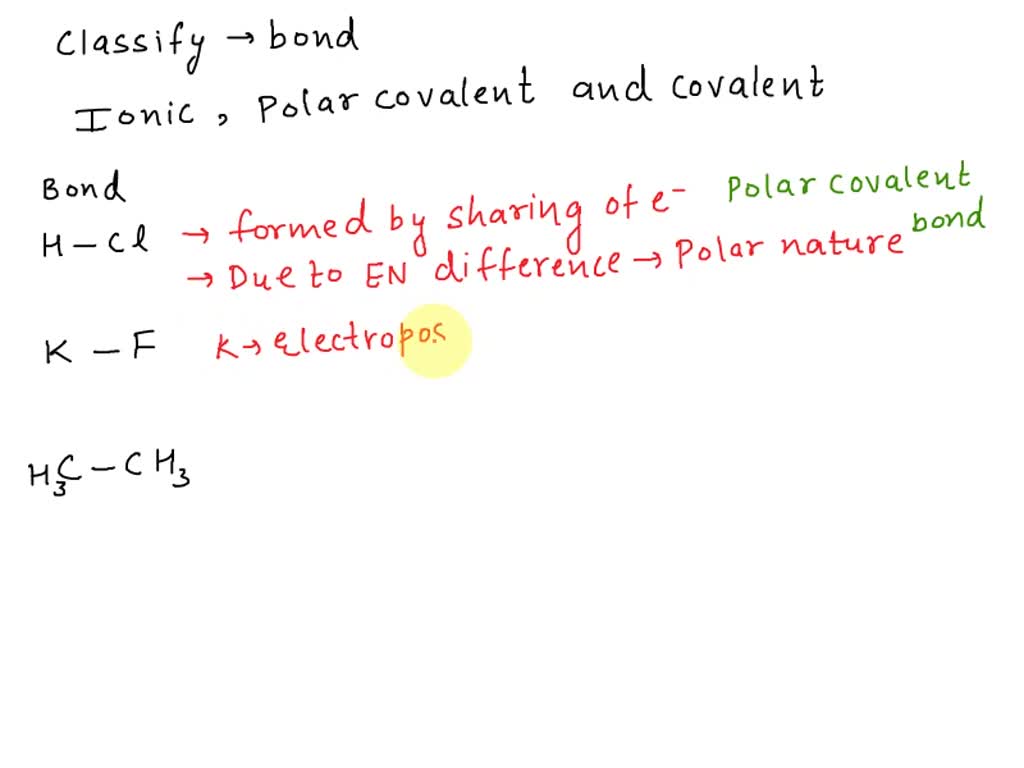 Classify → bond
Ionic, Polar covalent and covalent
Bond
H – Cl → formed by sharing of e⁻ Polar covalent bond
→ Due to EN difference → Polar nature
K – F K → Electropos
H₃C – CH₃